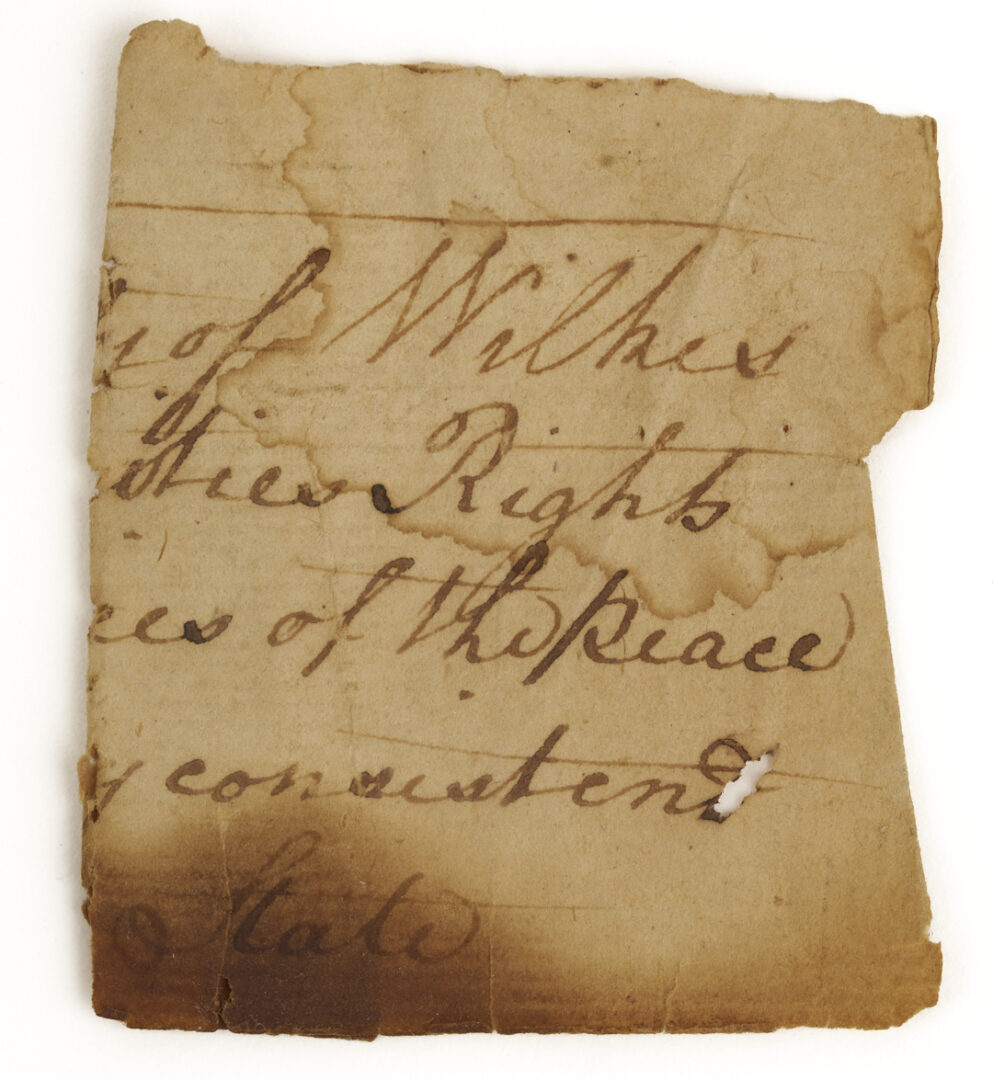 y of Wilkes
ties Rights
ces of the peace
y consistent
State